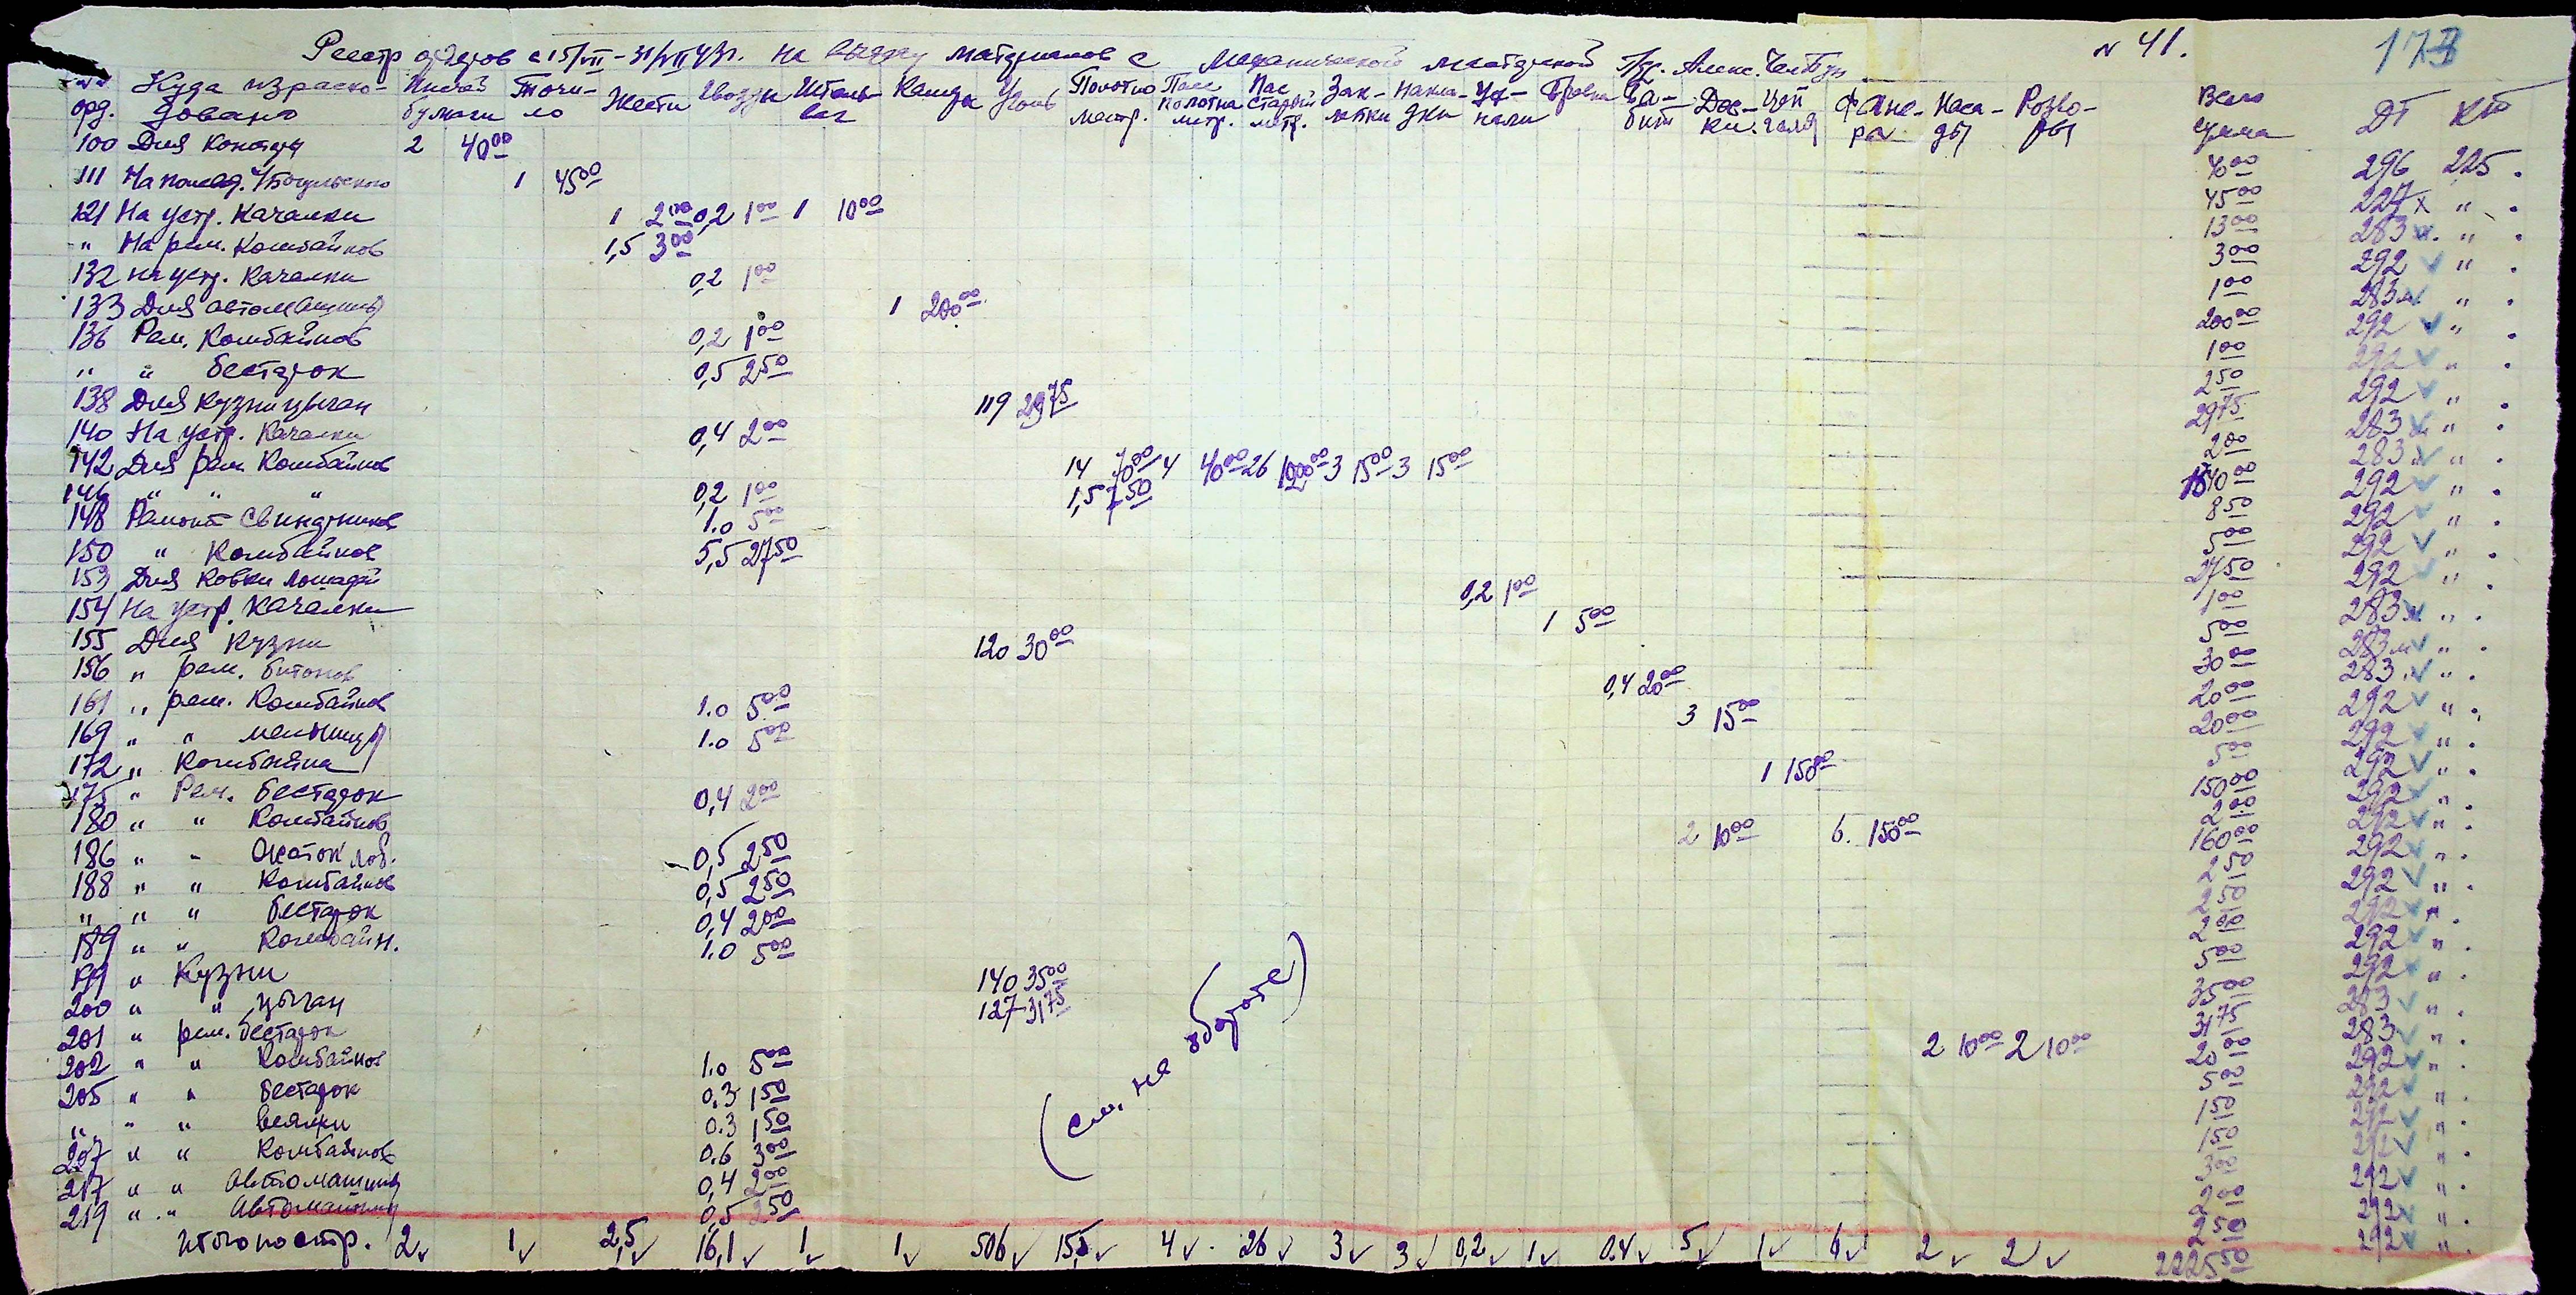 Реестр ордеров с 15/VII - 31/VII 43г. на выдачу материалов с механической мастерской
№ 41.
173
№№ орд. Куда израсходовано Писчей бумаги Точило Жести Гвозди Штель Камеры Уголь Полотно метр. Пасс полотна метр. Пас старый метр. Заклепки Накладки Бревна Бабит Доски Цепи галя Фанера Насады Розводы Всего сумма ДТ КТ
100 Для Конторы 2 40 00 40 00 296 225
111 1 45 00 45 00 227 "
121 На устр. Качалки 1 2 00 0,2 1 00 1 10 00 13 00 283 "
" На рем. Комбайнов 1,5 3 00 3 00 292 "
132 на устр. Качалки 0,2 1 00 1 00 283 "
133 Для автомашины 1 200 00 200 00 292 "
136 Рем. Комбайнов 0,2 1 00 1 00 292 "
" " бестарок 0,5 2 50 2 50 292 "
138 Для Кузни цыган 119 29 75 29 75 283 "
140 На устр. Качалки 0,4 2 00 2 00 283 "
142 Для рем Комбайнов 14 70 00 4 40 00 26 3 15 00 3 15 00 292 "
146 " " " 0,2 1 00 1,5 7 50 8 50 292 "
148 Ремонт Свинарников 1.0 5 00 5 00 292 "
150 " Комбайнов 5,5 27 50 27 50 292 "
153 Для Ковки лошадей 0,2 1 00 1 00 283 "
154 На устр. Качалки 1 5 00 5 00 283 "
155 Для Кузни 120 30 00 30 00 283 "
156 " рем. битонов 0,4 20 00 20 00 292 "
161 " рем. Комбайнов 1.0 5 00 3 15 00 20 00 292 "
169 " " мельницы 1.0 5 00 5 00 292 "
172 " Комбайна 1 150 00 150 00 292 "
175 " Рем. бестарок 0,4 2 00 2 00 292 "
180 " " Комбайнов 2 10 00 6. 150 00 160 00 292 "
186 " " 0,5 2 50 2 50 292 "
188 " " Комбайнов 0,5 2 50 2 50 292 "
" " " бестарок 0,4 2 00 2 00 292 "
189 " " Комбайн. 1.0 5 00 5 00 292 "
199 " Кузни 140 35 00 35 00 283 "
200 " " цыган 127 31 75 31 75 283 "
201 " рем. бестарок 2 10 00 2 10 00 20 00 292 "
202 " " Комбайнов 1.0 5 00 5 00 292 "
205 " " бестарок 0.3 1 50 1 50 292 "
" " " веялки 0.3 1 50 1 50 292 "
207 " " Комбайнов 0.6 3 00 3 00 292 "
217 " " Автомашины 0,4 2 00 2 00 292 "
219 " " Автомашины 0,5 2 50 2 50 292 "
(см. на обороте)
Итого по стр. 2 1 2,5 16,1 1 1 506 15,5 4 26 3 3 0,2 1 0.4 5 1 6 2 2 2225 50